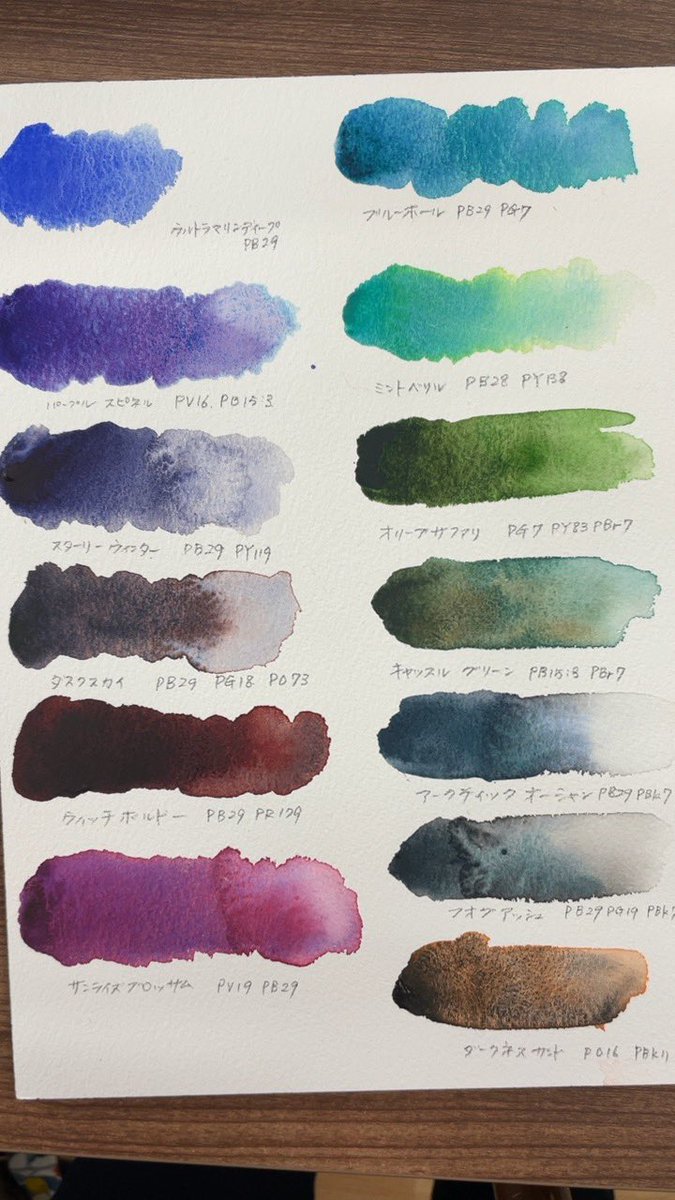 ウルトラマリンディープ
PB29
パープル スピネル PV16, PB15:3
スターリーウィンター PB29 PY119
ダスクスカイ PB29 PG18 PO73
ウィッチボルドー PB29 PR179
サンライズブロッサム PV19 PB29
ブルーホール PB29 PG7
ミントベリル PB28 PY138
オリーブサファリ PG7 PY83 PBr7
キャッスル グリーン PB15:3 PBr7
アークティック オーシャン PB29 PBk7
フォグアッシュ PB29 PG19 PBk7
ダークネスサンド PO16 PBk11